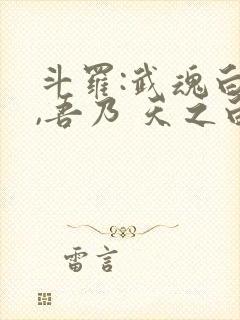 斗羅:武魂白
,吾乃 天之白
雷言